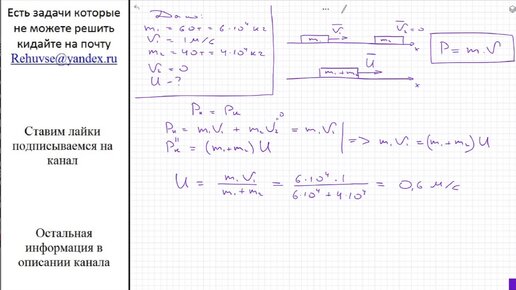 Есть задачи которые
не можете решить
кидайте на почту
Rehuvse@yandex.ru
Ставим лайки
подписываемся на
канал
Остальная
информация в
описании канала
Дано:
m₁ = 60т = 6·10⁴ кг
V₁ = 1 м/с
m₂ = 40т = 4·10⁴ кг
V₂ = 0
U - ?
V₁
V₂ = 0
m₁
m₂
x
U
m₁+m₂
x
P = m·V
Pн = Pк
Pн = m₁V₁ + m₂V₂ = m₁V₁
Pк = (m₁+m₂) U
=> m₁V₁ = (m₁+m₂) U
U = m₁V₁ / m₁+m₂ = 6·10⁴·1 / 6·10⁴+4·10⁴ = 0,6 м/с